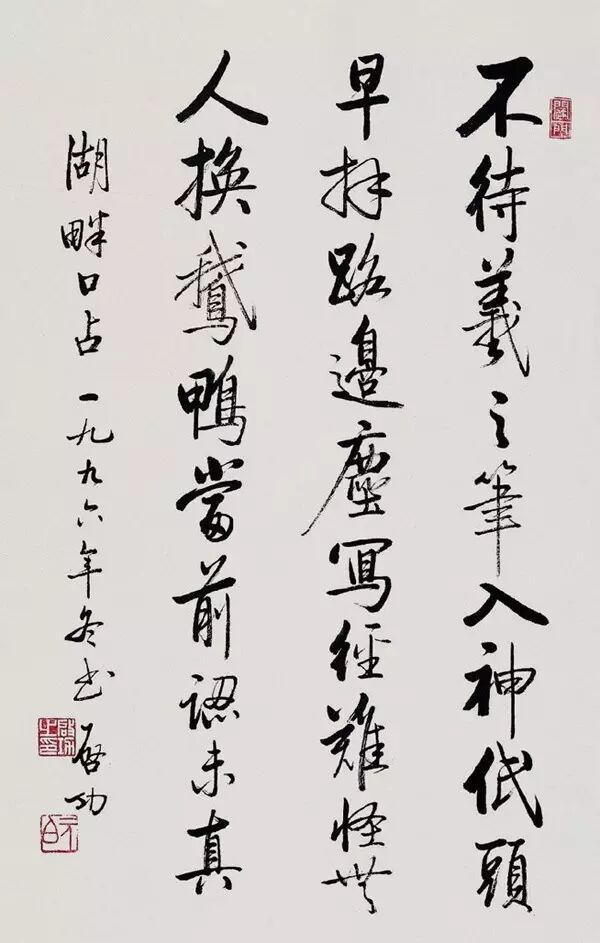 不待羲之筆入神低頭
早拜路邊塵寫經難怪無
人換鵝鴨當前認未真
湖畔口占一九九六年冬書啓功
啓功之印
元白